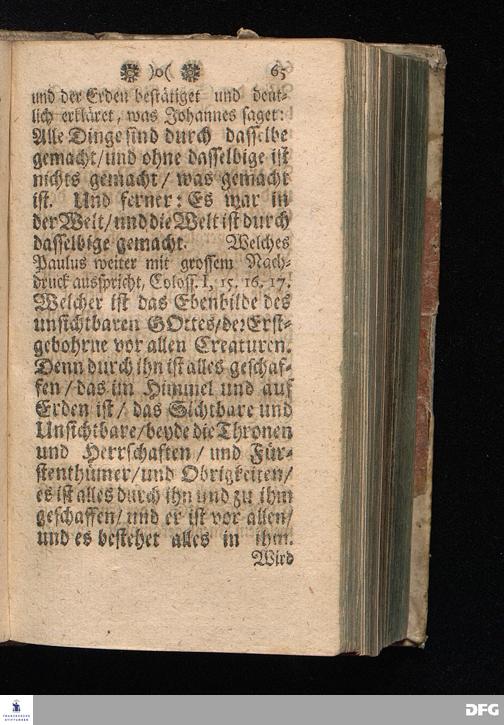 )o( 65
und der Erden bestätiget und deut-
lich erkläret, was Johannes saget:
Alle Dinge sind durch dasselbe
gemacht/und ohne dasselbige ist
nichts gemacht / was gemacht
ist. Und ferner: Es war in
der Welt/und die Welt ist durch
dasselbige gemacht. Welches
Paulus weiter mit grossem Nach-
druck ausspricht, Coloss. I, 15. 16. 17.
Welcher ist das Ebenbilde des
unsichtbaren GOttes/der Erst-
gebohrne vor allen Creaturen.
Denn durch ihn ist alles geschaf-
fen / das im Himmel und auf
Erden ist / das Sichtbare und
Unsichtbare/beyde die Thronen
und Herrschaften / und Für-
stenthümer/und Obrigkeiten/
es ist alles durch ihn und zu ihm
geschaffen/ und er ist vor allen/
und es bestehet alles in ihm.
Wird
FRANCKESCHE STIFTUNGEN
DFG